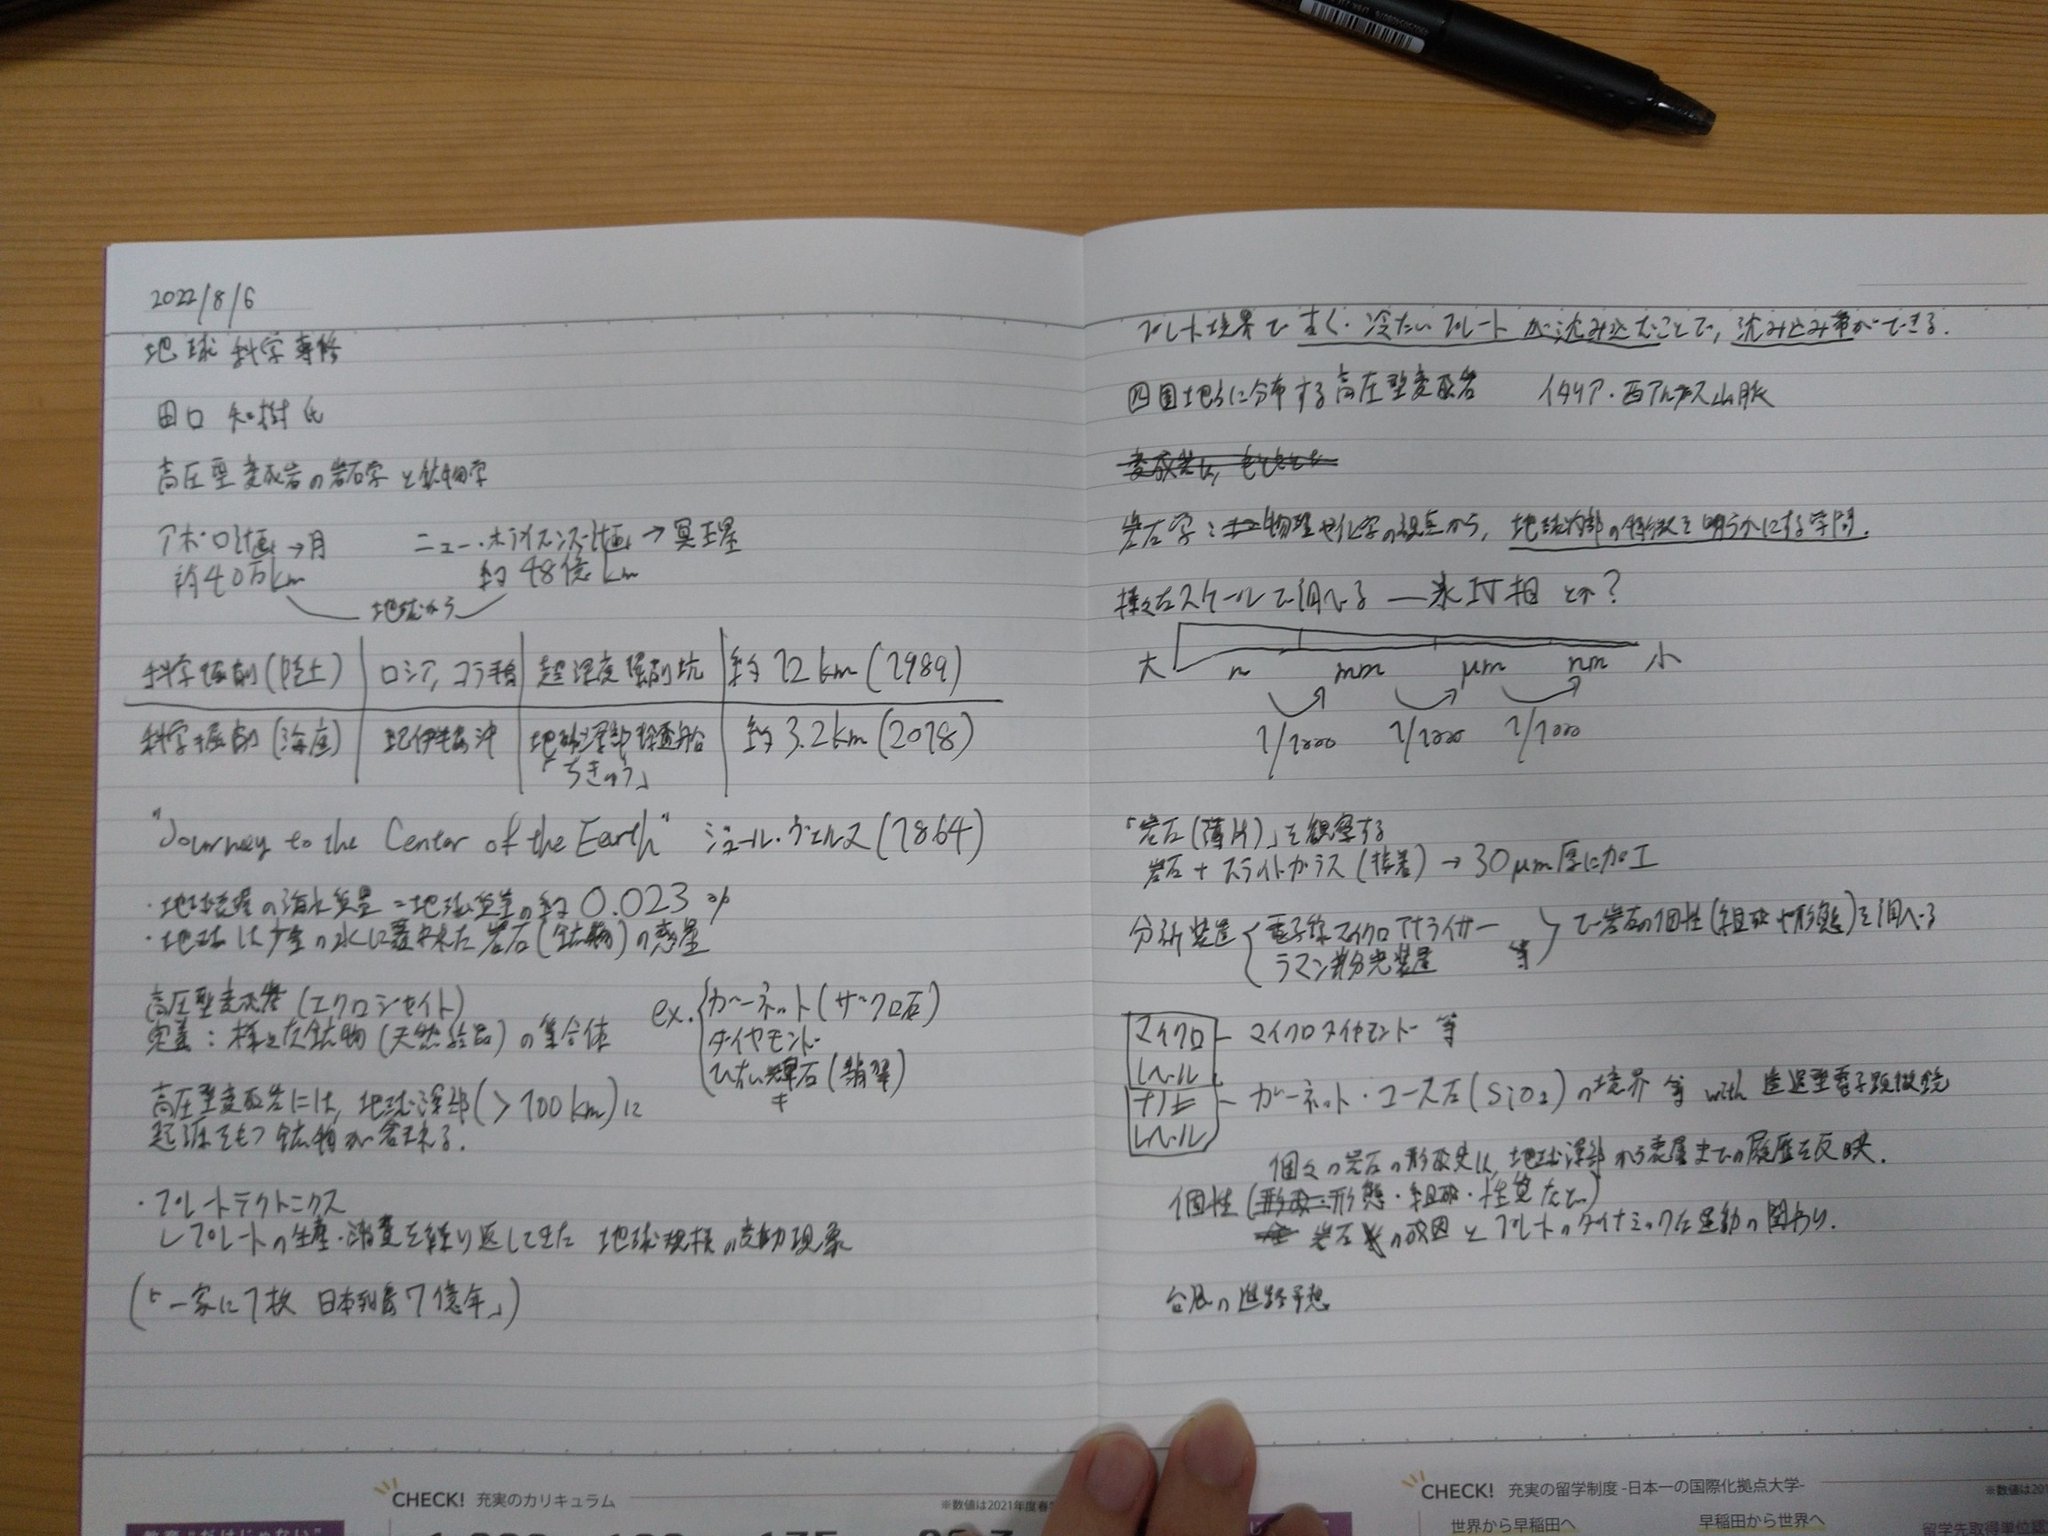 2022/8/6
地球科学専修
田口 知樹 氏
高圧型変成岩の岩石学と鉱物学
アポロ計画→月 ニュー・ホライズンズ計画→冥王星
約40万km 約48億km
地球から
科学掘削(陸上) ロシア,コラ半島 超深度掘削坑 約12km(1989)
科学掘削(海底) 紀伊半島沖 地球深部探査船 約3.2km(2018)
「ちきゅう」
"Journey to the Center of the Earth" ジュール・ヴェルヌ(1864)
・地球表層の海水質量=地球質量の約0.023%
・地球は少量の水に覆われた岩石(鉱物)の惑星
高圧型変成岩(エクロジャイト)
定義:様々な鉱物(天然結晶)の集合体
ex. ガーネット(ザクロ石)
ダイヤモンド
ひすい輝石(翡翠)
高圧型変成岩には,地球深部(>100km)に
起源をもつ鉱物が含まれる.
・プレートテクトニクス
プレートの生産・消費を繰り返してきた 地球規模の変動現象
(「一家に1枚 日本列島7億年」)
プレート境界で古く・冷たいプレートが沈み込むことで,沈み込み帯ができる.
四国地方に分布する高圧型変成岩 イタリア・西アルプス山脈
変成岩は,
岩石学: 物理や化学の視点から,地球内部の特徴を明らかにする学問.
様々なスケールで調べる ― 氷IV相とか?
大 m mm μm nm 小
1/1000 1/1000 1/1000
「岩石(薄片)」を観察する
岩石+スライドガラス(接着)→30μm厚に加工
分析装置 電子線マイクロアナライザー
ラマン分光装置 等 で岩石の個性(組成や形態)を調べる
マイクロ
レベル
マイクロダイヤモンド 等
ナノ
レベル
ガーネット・コース石(SiO2)の境界 等 with 透過型電子顕微鏡
個々の岩石の形成史は,地球深部から表層までの履歴を反映.
個性(形態・組成・性質など)
岩石の成因とプレートのダイナミックな運動の関わり.
台風の進路予想
CHECK! 充実のカリキュラム
※数値は2021年度春
CHECK! 充実の留学制度 -日本一の国際化拠点大学-
世界から早稲田へ 早稲田から世界へ